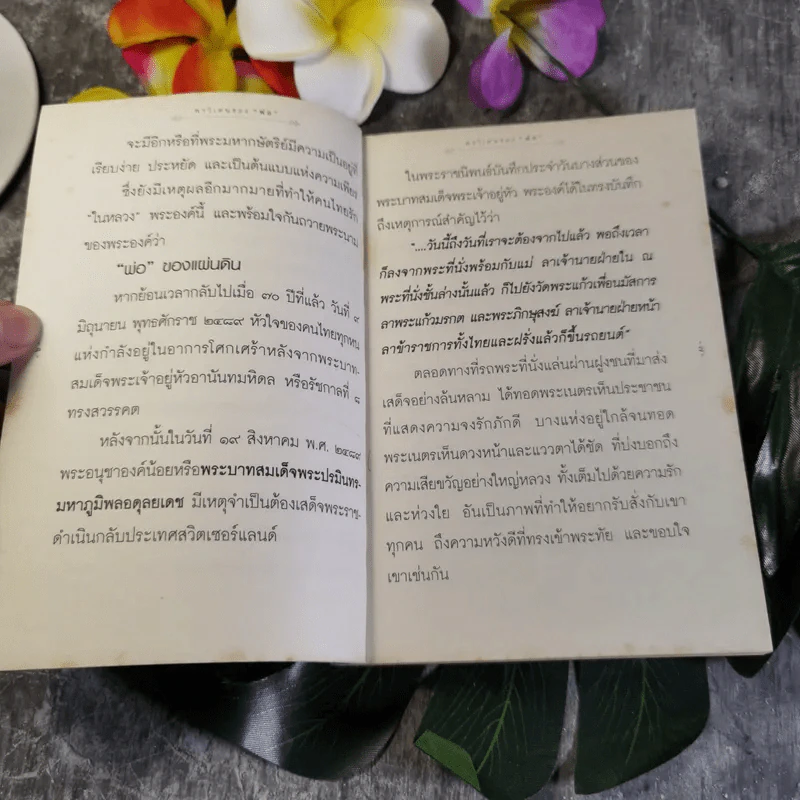 จะมีอีกหรือที่พระมหากษัตริย์มีความเป็นอยู่ที่
เรียบง่าย ประหยัด และเป็นต้นแบบแห่งความเพียร
ซึ่งยังมีเหตุผลอีกมากมายที่ทำให้คนไทยรัก
"ในหลวง" พระองค์นี้ และพร้อมใจกันถวายพระนาม
ของพระองค์ว่า
"พ่อ" ของแผ่นดิน
หากย้อนเวลากลับไปเมื่อ ๗๐ ปีที่แล้ว วันที่ ๙
มิถุนายน พุทธศักราช ๒๔๘๙ หัวใจของคนไทยทุกหน
แห่งกำลังอยู่ในอาการโศกเศร้าหลังจากพระบาท-
สมเด็จพระเจ้าอยู่หัวอานันทมหิดล หรือรัชกาลที่ ๘
ทรงสวรรคต
หลังจากนั้นในวันที่ ๑๙ สิงหาคม พ.ศ. ๒๔๘๙
พระอนุชาองค์น้อยหรือพระบาทสมเด็จพระปรมินทร-
มหาภูมิพลอดุลยเดช มีเหตุจำเป็นต้องเสด็จพระราช-
ดำเนินกลับประเทศสวิตเซอร์แลนด์
ในพระราชนิพนธ์บันทึกประจำวันบางส่วนของ
พระบาทสมเด็จพระเจ้าอยู่หัว พระองค์ได้ในทรงบันทึก
ถึงเหตุการณ์สำคัญไว้ว่า
"....วันนี้ถึงวันที่เราจะต้องจากไปแล้ว พอถึงเวลา
ก็ลงจากพระที่นั่งพร้อมกับแม่ ลาเจ้านายฝ่ายใน ณ
พระที่นั่งชั้นล่างนั้นแล้ว ก็ไปยังวัดพระแก้วเพื่อนมัสการ
ลาพระแก้วมรกต และพระภิกษุสงฆ์ ลาเจ้านายฝ่ายหน้า
ลาข้าราชการทั้งไทยและฝรั่งแล้วก็ขึ้นรถยนต์"
ตลอดทางที่รถพระที่นั่งแล่นผ่านฝูงชนที่มาส่ง
เสด็จอย่างล้นหลาม ได้ทอดพระเนตรเห็นประชาชน
ที่แสดงความจงรักภักดี บางแห่งอยู่ใกล้จนทอด
พระเนตรเห็นดวงหน้าและแววตาได้ชัด ที่บ่งบอกถึง
ความเสียขวัญอย่างใหญ่หลวง ทั้งเต็มไปด้วยความรัก
และห่วงใย อันเป็นภาพที่ทำให้อยากรับสั่งกับเขา
ทุกคน ถึงความหวังดีที่ทรงเข้าพระทัย และขอบใจ
เขาเช่นกัน